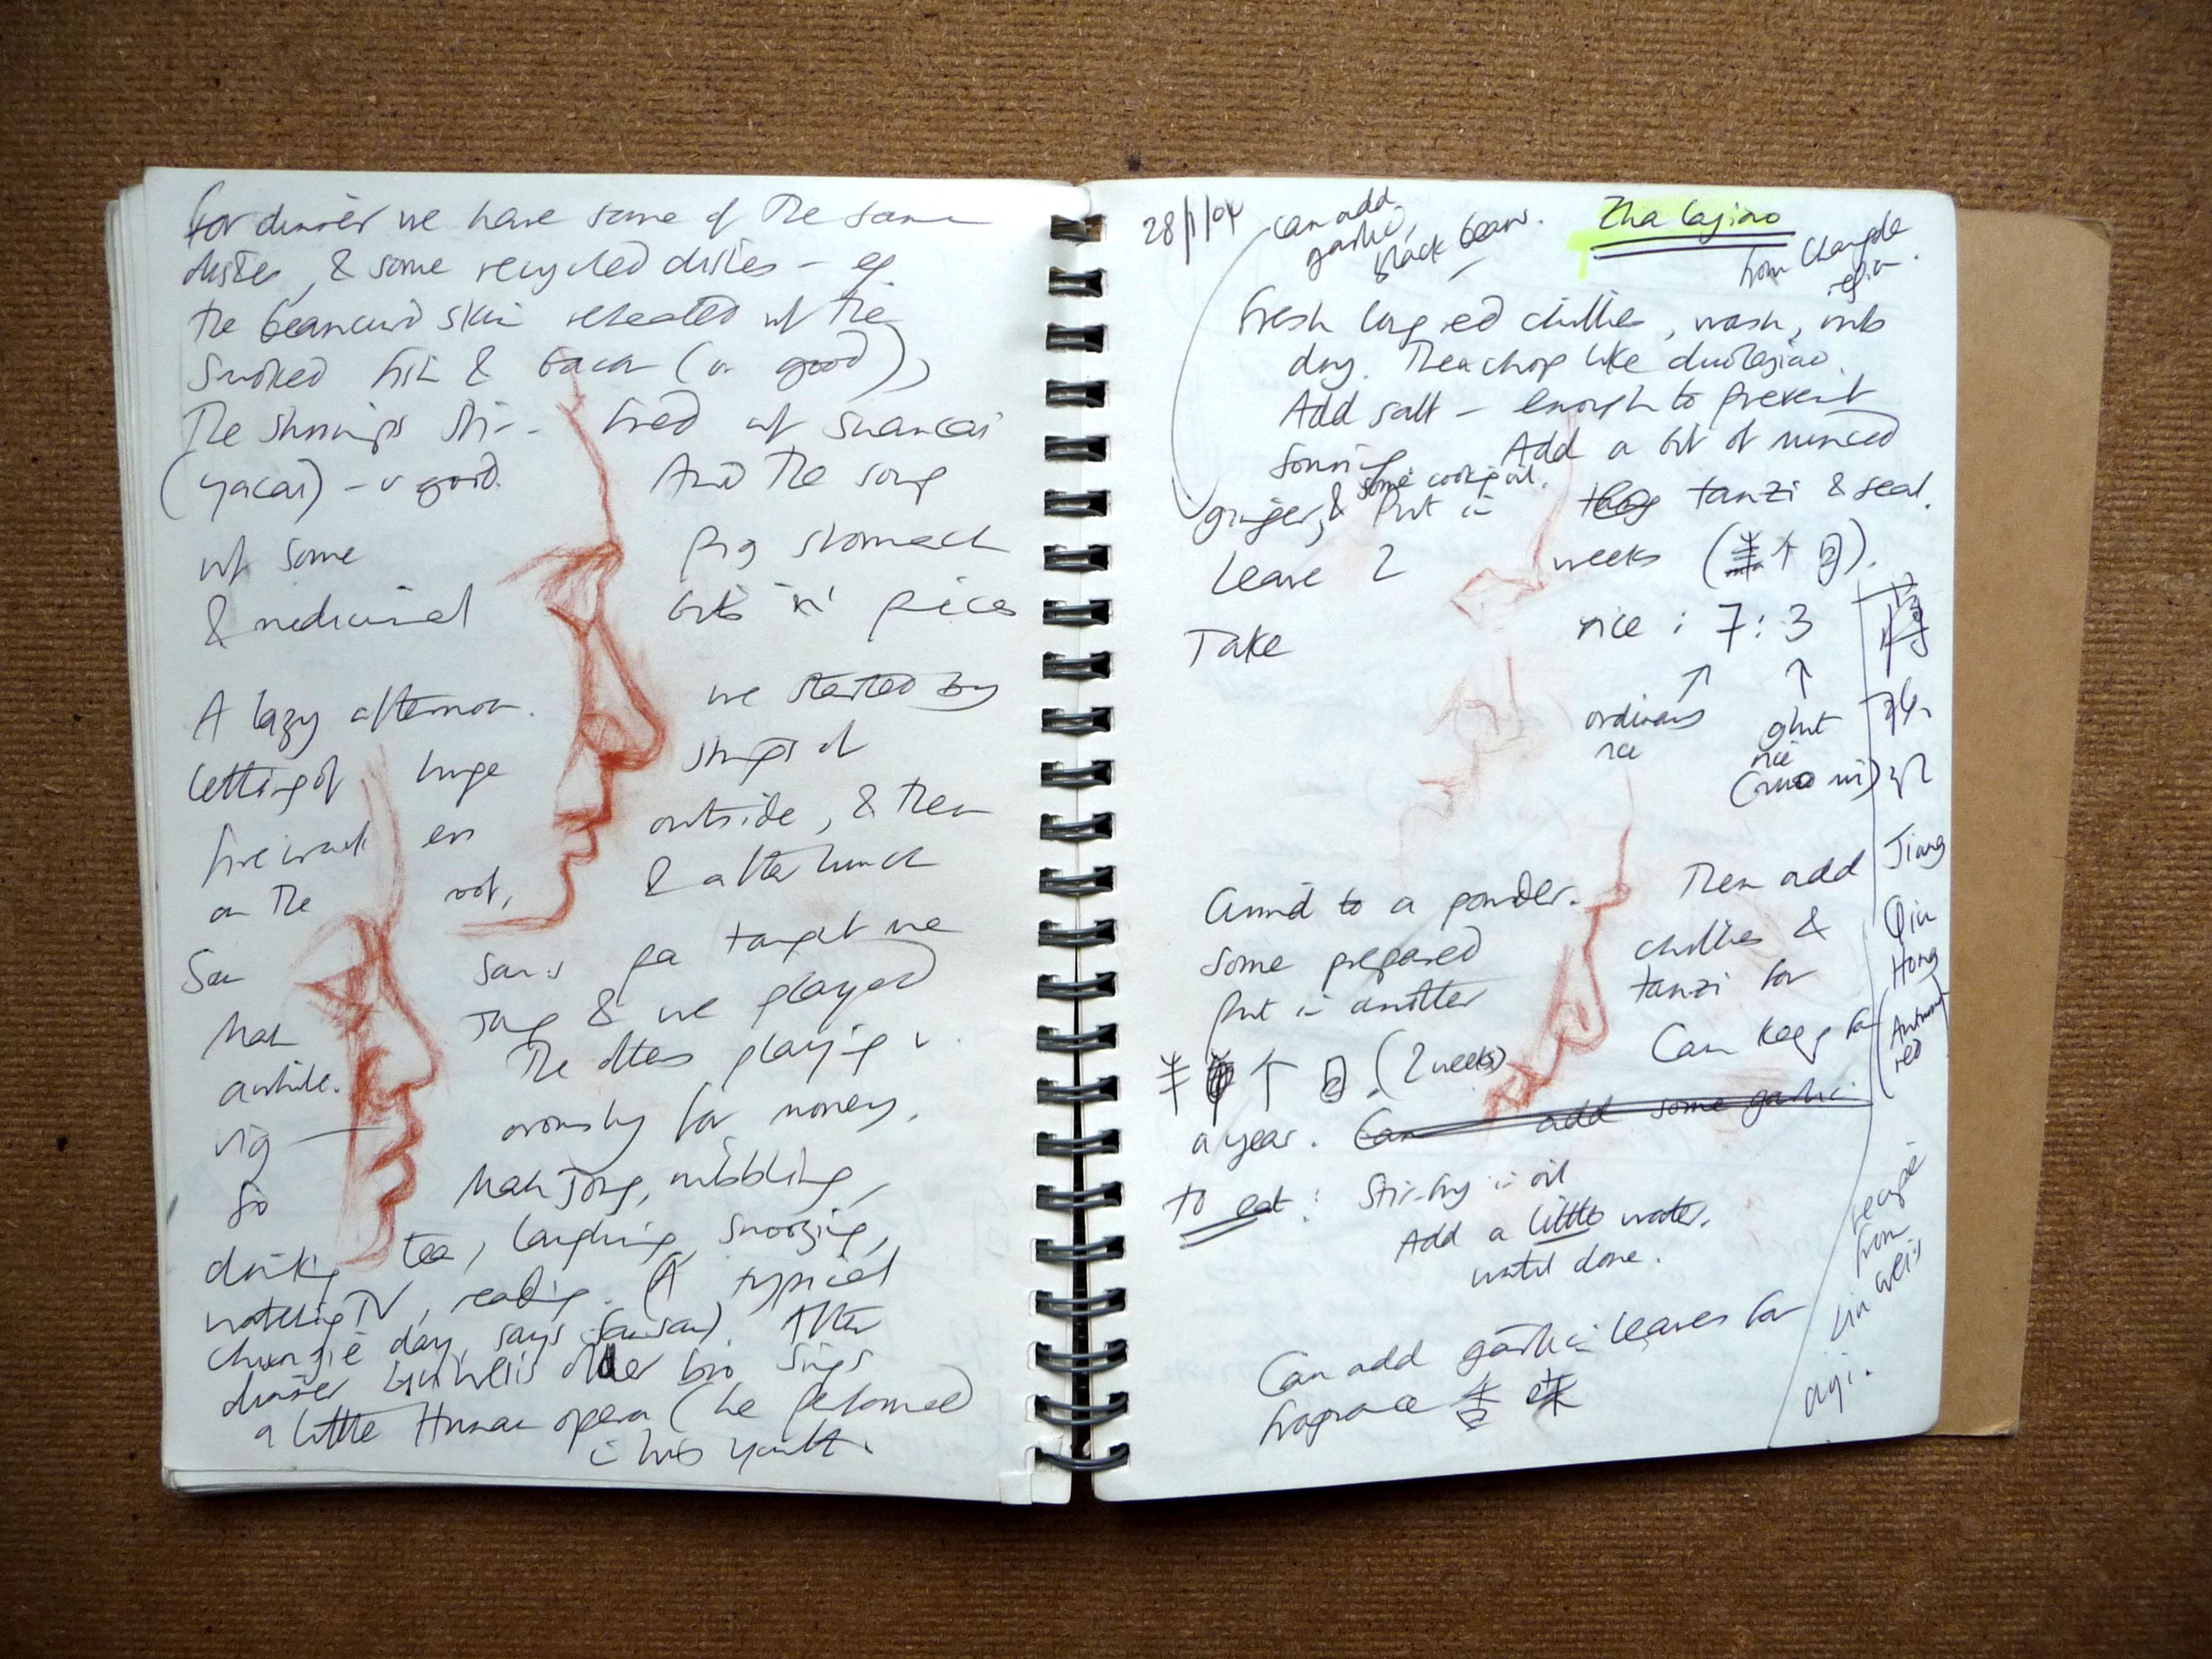 for dinner we have some of the same
dishes, & some recycled dishes – eg
the beancurd skin reheated w/ the
smoked fish & bacon (v good),
The shrimps stir-fried w/ suancai
(yacai) – v good. And the soup
w/ some pig stomach
& medicinal bits 'n' pieces
A lazy afternoon. we started by
letting off huge strings of
firecrackers outside, & then
on the roof, & after lunch
San San's pa taught me
Mah Jong & we played
awhile. The others playing v.
vigorously for money.
So Mah Jong, nibbling,
drinking tea, laughing, snoozing,
watching TV, reading. (A typical
chunjie day, says Sansan). After
dinner Liu Wei's older bro sings
a little Hunan opera (he performed
in his youth.
28/1/04
can add
garlic,
black beans.
Zha lajiao
from Changde
region.
Fresh long red chillies, wash, rub
dry. Then chop like duolajiao.
Add salt – enough to prevent
souring Add a bit of minced
ginger, & some cooking oil. Put in tanzi & seal.
Leave 2 weeks (半个月).
Take rice : 7 : 3
ordinary
rice
glut
rice
(nuo mi)
Grind to a powder. Then add
some prepared chillies &
put in another tanzi for
半个月. (2 weeks) Can keep for
a year. Can add some garlic
to eat: Stir-fry in oil
Add a little water.
until done.
Can add garlic leaves for
fragrance 香味
Jiang
Qin
Hong
recipe
from
Liu Wei's
ayi.